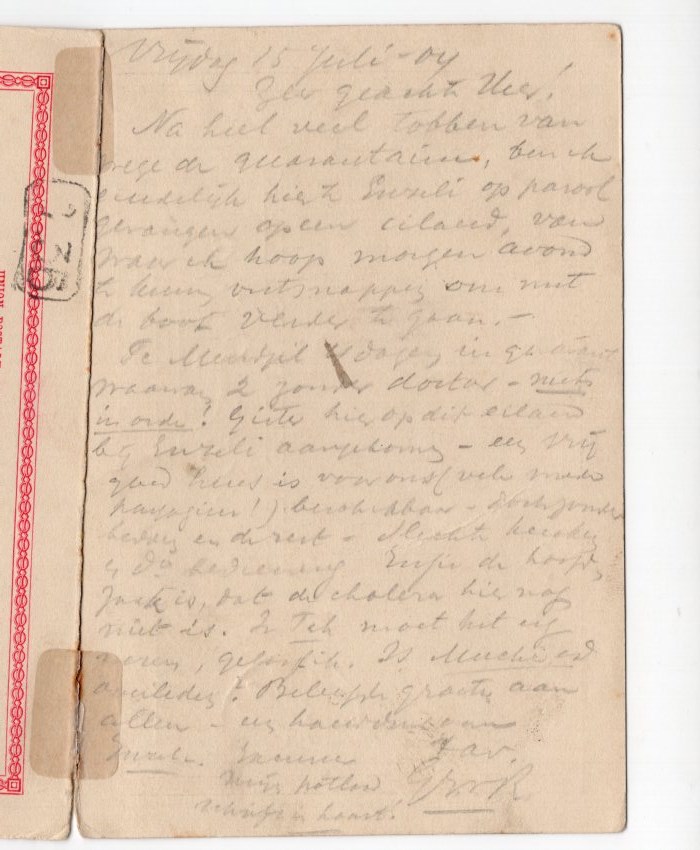 Vrijdag 15 Juli - 04
Zeer geachte Heer!
Na heel veel tobben van
wege de quarantaine, ben ik
eindelijk hier te Enzeli op parool
gevangen op een eiland, van
waar ik hoop morgen avond
te kunnen ontsnappen om met
de boot verder te gaan. -
Te Mendjil 4 dagen in
waarvan 2 zonder doctor - niets
in orde! Gister hier op dit eiland
bij Enzeli aangekomen - een vrij
goed huis is voor ons (vele mede
passagiers!) beschikbaar - doch zonder
bedden en de rest - slechte
en do bediening Enfin de hoofd
zaak is, dat de cholera hier nog
niet is. In Teh moet het erg
wezen, geloof ik. Is
overleden? Beleefde groeten aan
allen - een handdruk van
Enzeli.
potlood